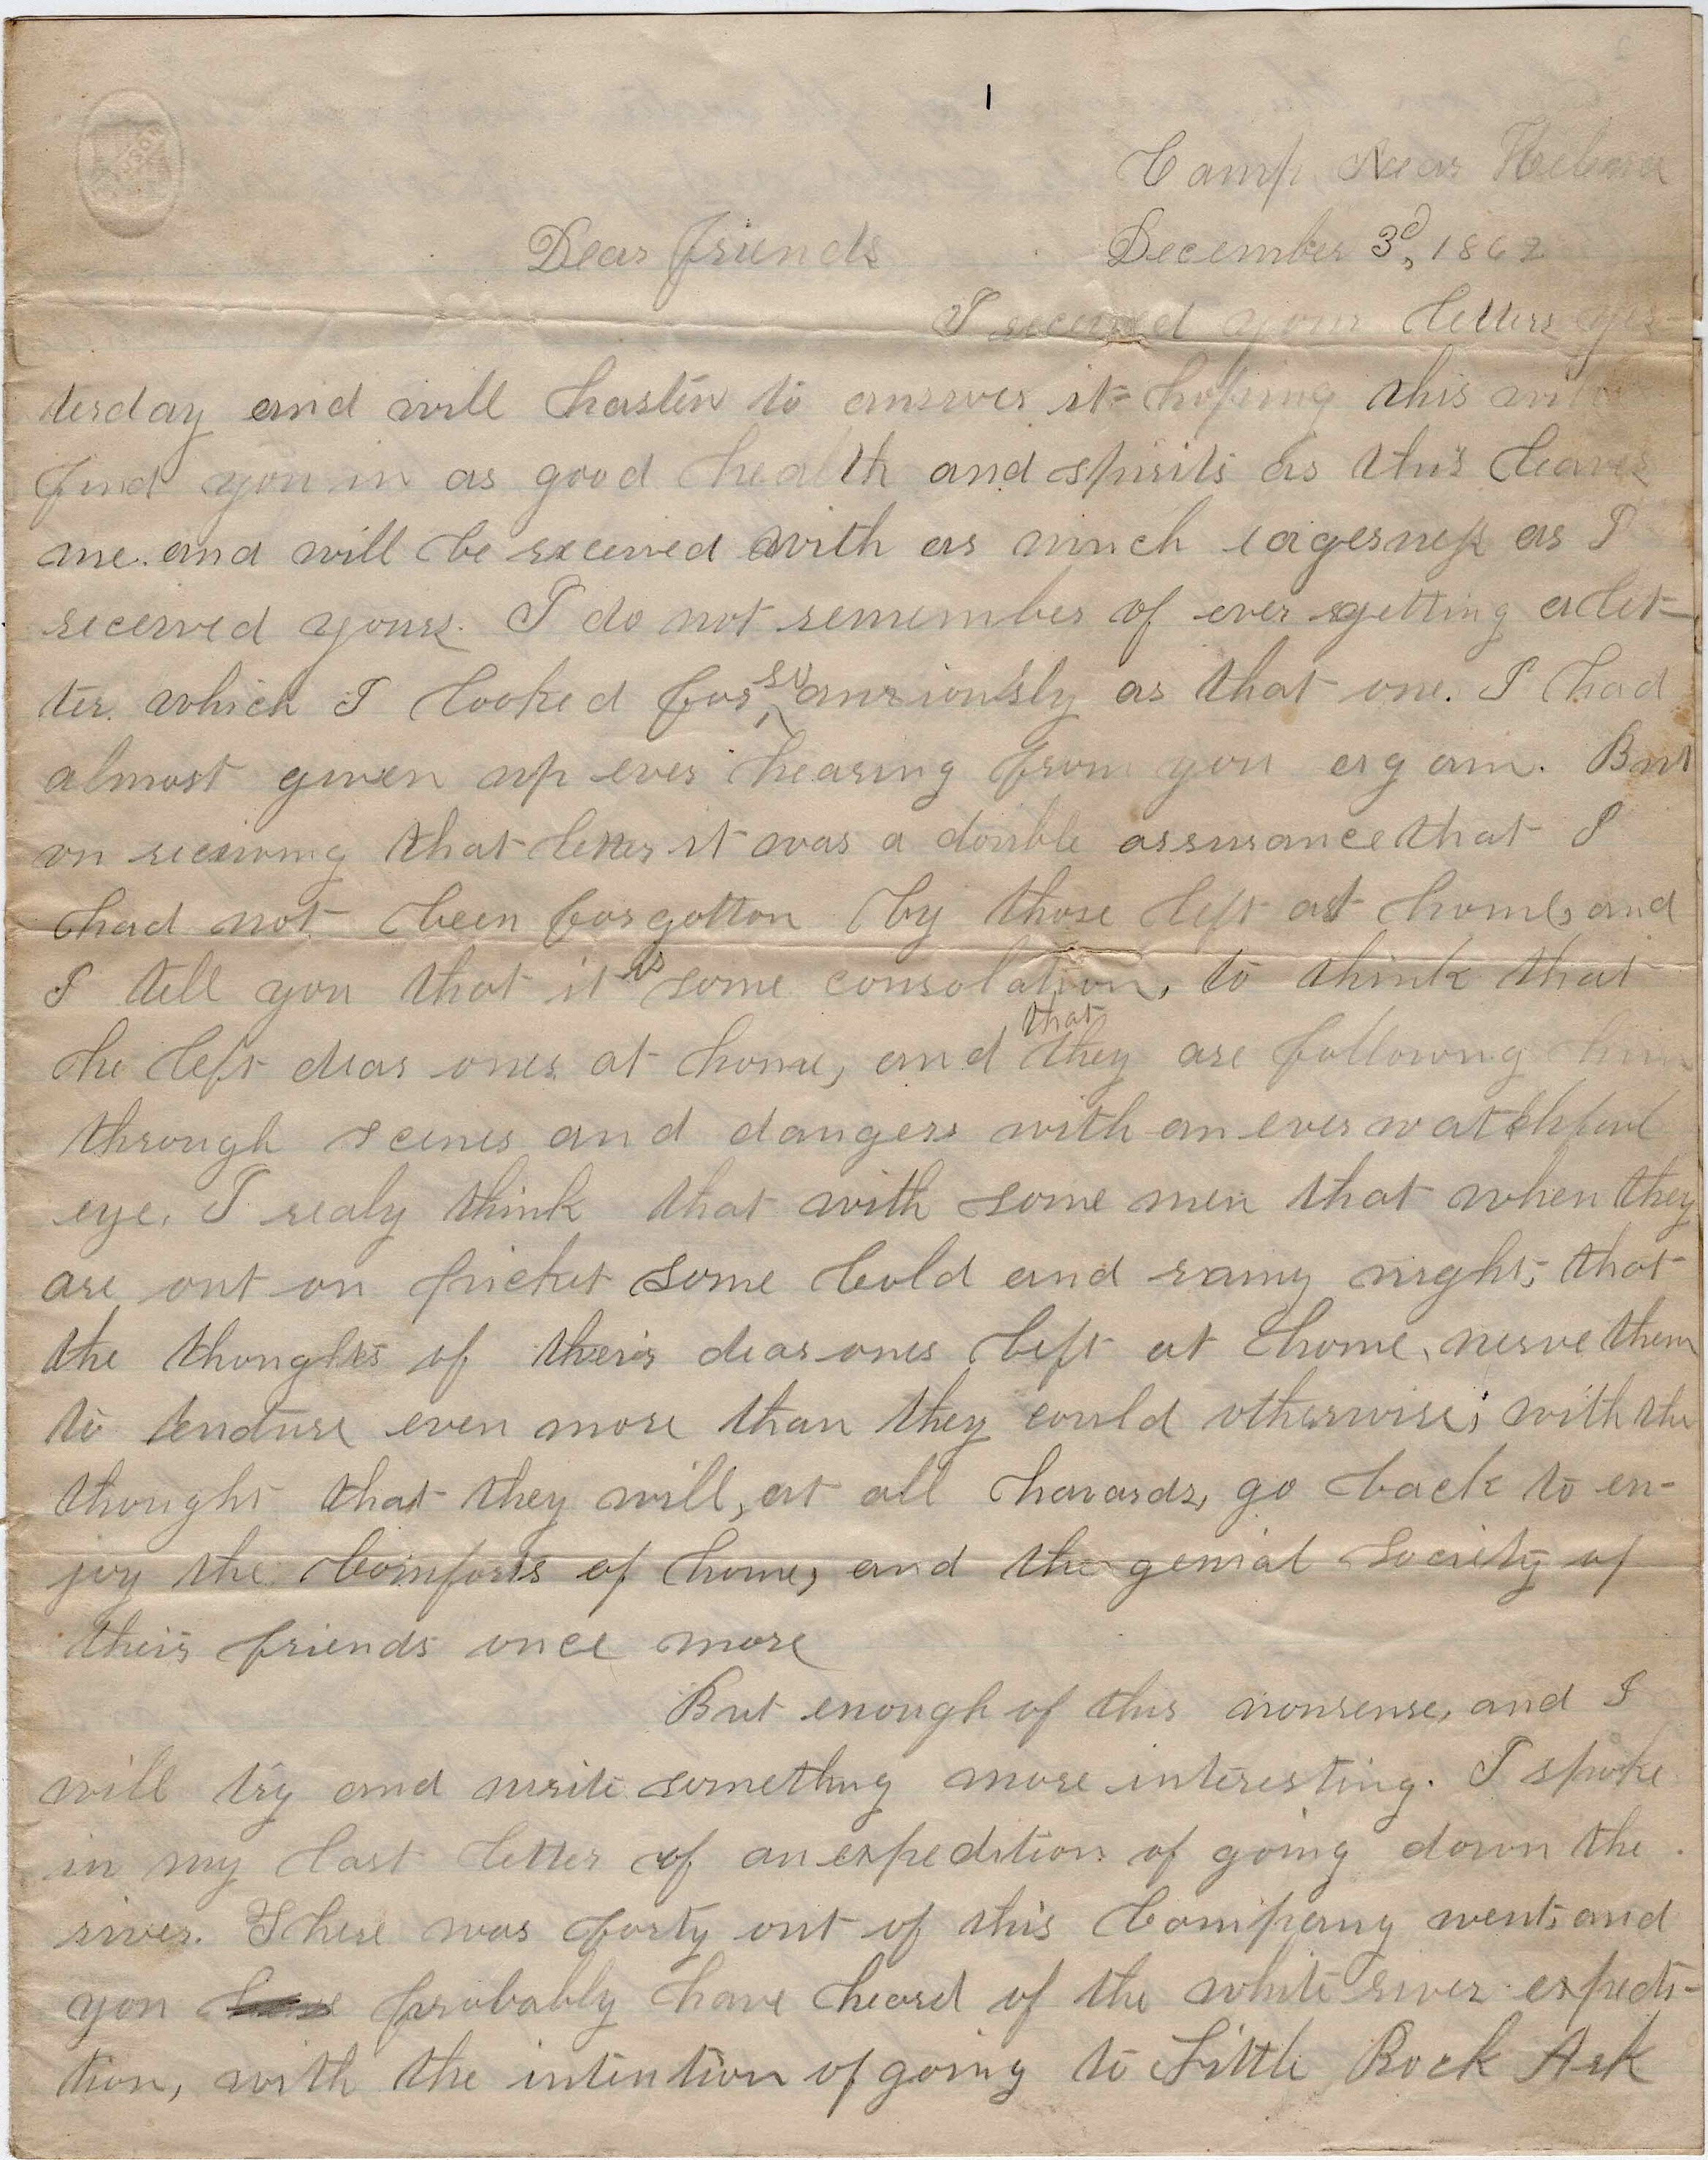 1
Camp Near Helena
Dear friends December 3d, 1862
I received your letters yes-
terday and will hasten to answer it hoping this will
find you in as good health and spirits as this leaves
me. and will be received with as much eagerness as I
received yours. I do not remember of ever getting a let-
ter. which I looked for so anxiously as that one. I had
almost given up ever hearing from you again. But
on receiving that letter it was a double assurance that I
had not been forgotton by those left at home, and
I tell you that it is some consolation, to think that
he left dear ones at home, and that they are following him
through scenes and dangers with an ever watchful
eye. I realy think that with some men that when they
are out on picket some Cold and rainy night, that
the thoughts of their dear ones left at home, nerve them
to endure even more than they could otherwise; with the
thought that they will, at all hazards, go back to en-
joy the Comforts of home, and the genial society of
their friends once more
But enough of this nonsense, and I
will try and write something more interesting. I spoke
in my last letter of an expedition of going down the
river. There was forty out of this Company went, and
you probably have heard of the white river expedi-
tion, with the intention of going to Little Rock Ark